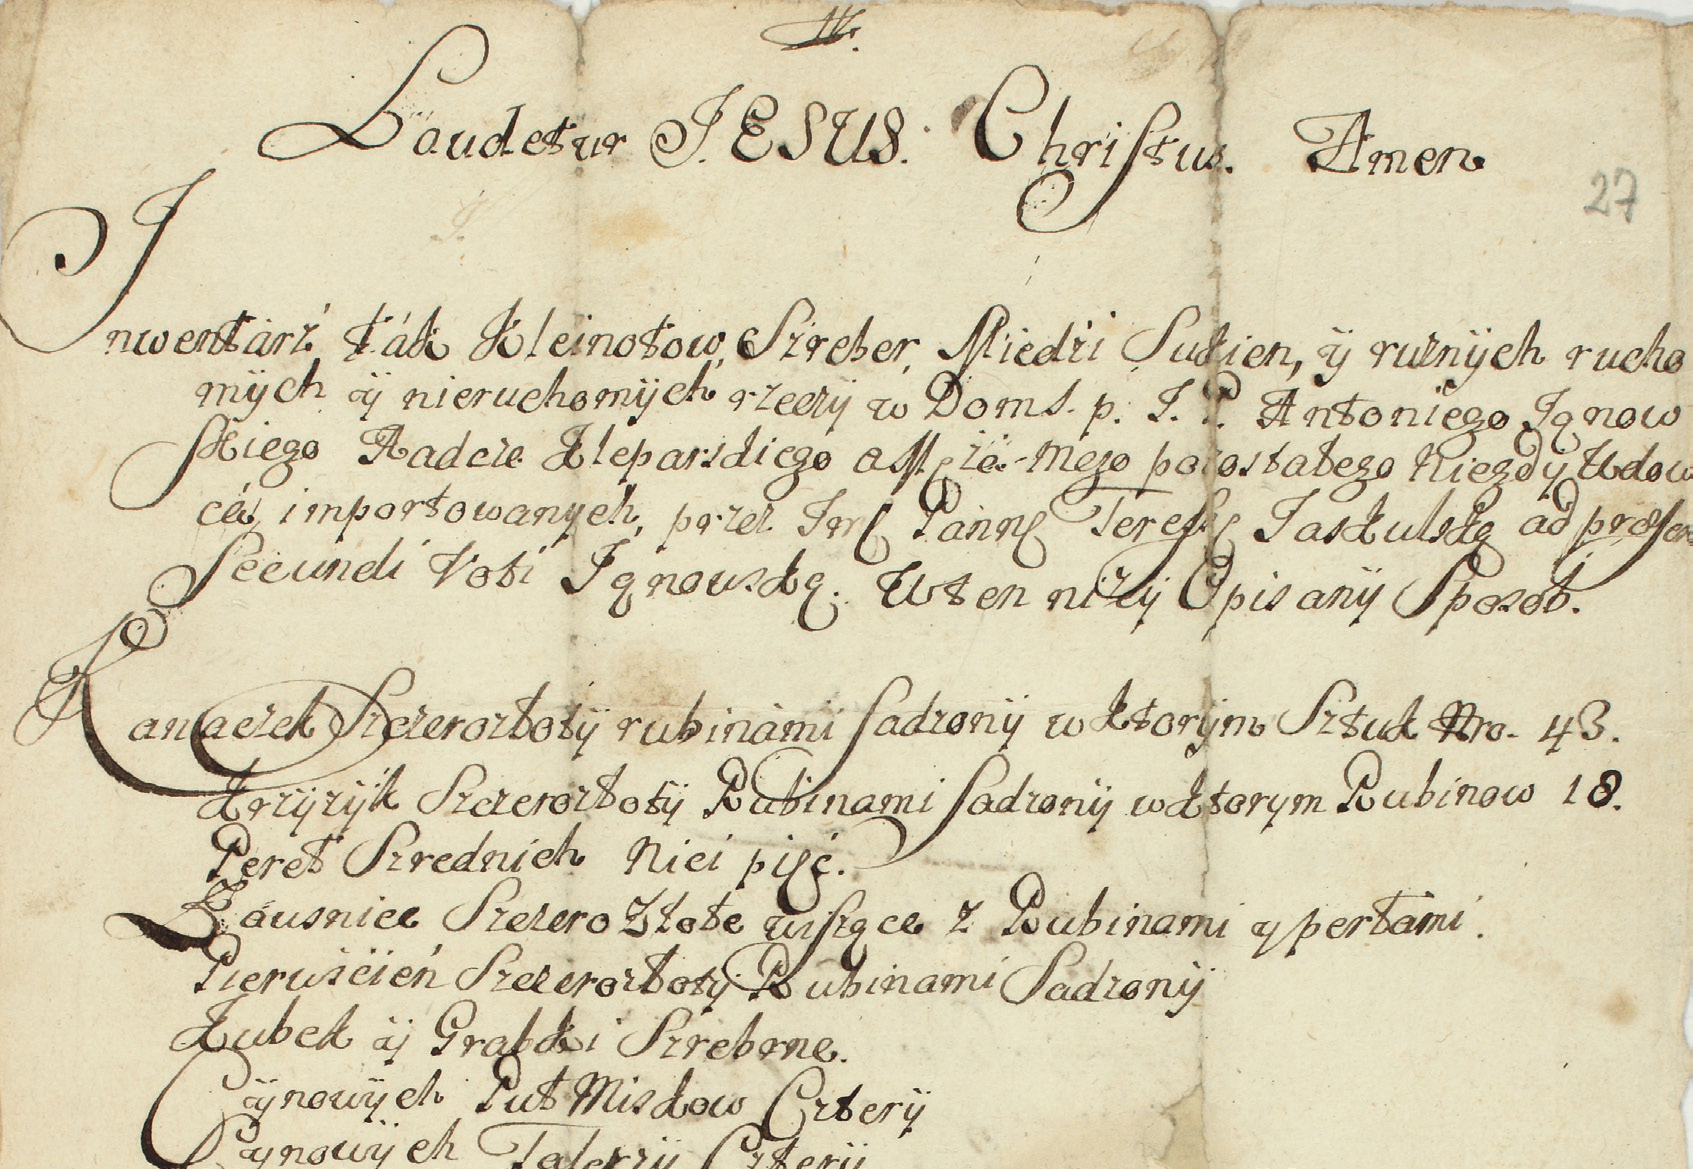 Laudetur JESUS. Christus. Amen
27
Inwentarz ták Kleinotow, Szreber, Miedzi Sukien, ÿ rużnÿch rucho
mÿch ÿ nieruchomÿch rzeczÿ w Doms. p. J. P. Antoniego Jgnow
skiego Radcze Kleparskiego a Męża mego pozostałego Niegdÿ Wdow
ca, importowanych, przez Jmę Pannę Teressę Jaskulską ad præsens
Secundi Voti Jgnowską. W ten niżÿ Opisanÿ Sposob.
Kanaczek Szczerozłotÿ rubinami sadzonÿ w ktorÿm Sztuk Nro. 43.
Krzÿzÿk Szczerozłotÿ Rubinami sadzonÿ w ktorym Rubinow 18.
Pereł Szrednich Nici pięć.
Záusnice Szczero Złote wiszące z Rubinami y perłami.
Pierwścień Szczerozłotÿ Rubinami Sadzonÿ
Kubek ÿ Grabki Szrebrne.
Cÿnowÿch Puł Miskow Czterÿ
Cÿnowÿch Talerzÿ Czterÿ